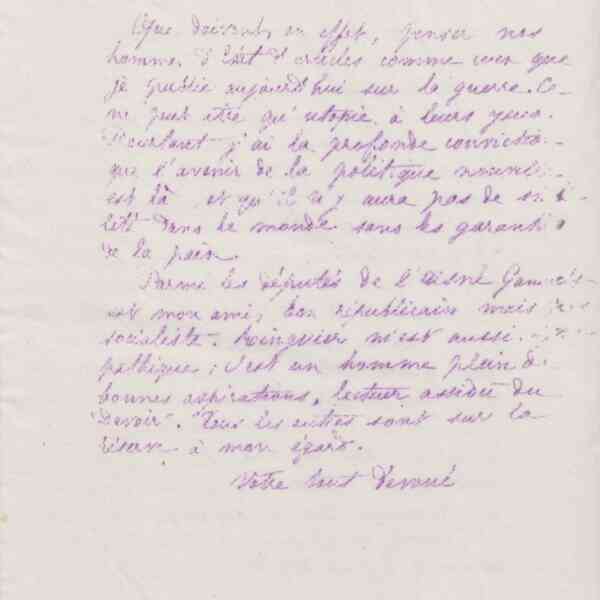 Que doivent, en effet, penser nos
hommes d'Etat d'articles comme ceux que
je publie aujourd'hui sur la guerre. Ce
ne peut être qu'utopie à leurs yeux.
Pourtant j'ai la profonde convictio
que l'avenir de la politique nouvel
est là, et qu'il n'y aura pas de
dans le monde sans les garanti
de la paix.
Parmi les députés de l'Aisne
est mon ami, bon républicain mais
socialiste. n'est aussi
pathique; c'est un homme plein de
bonnes aspirations, lecteur assidu du
"Devoir". Tous les autres sont sur la
réserve à mon égard.
Votre tout dévoué